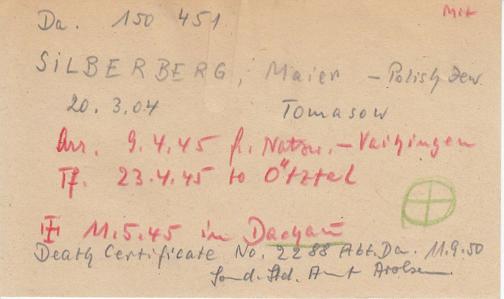 Mit
Da. 150 451
SILBERBERG, Maier - Polish Jew.
20. 3. 04 Tomasow
Arr. 9.4.45 f. Natzw. - Vaihingen
Tf. 23.4.45 to Ötztal
11.5.45 in Dachau
Death Certificate No. 2288 Abt. Da. 11.9.50
Sond. Std. Amt Arolsen